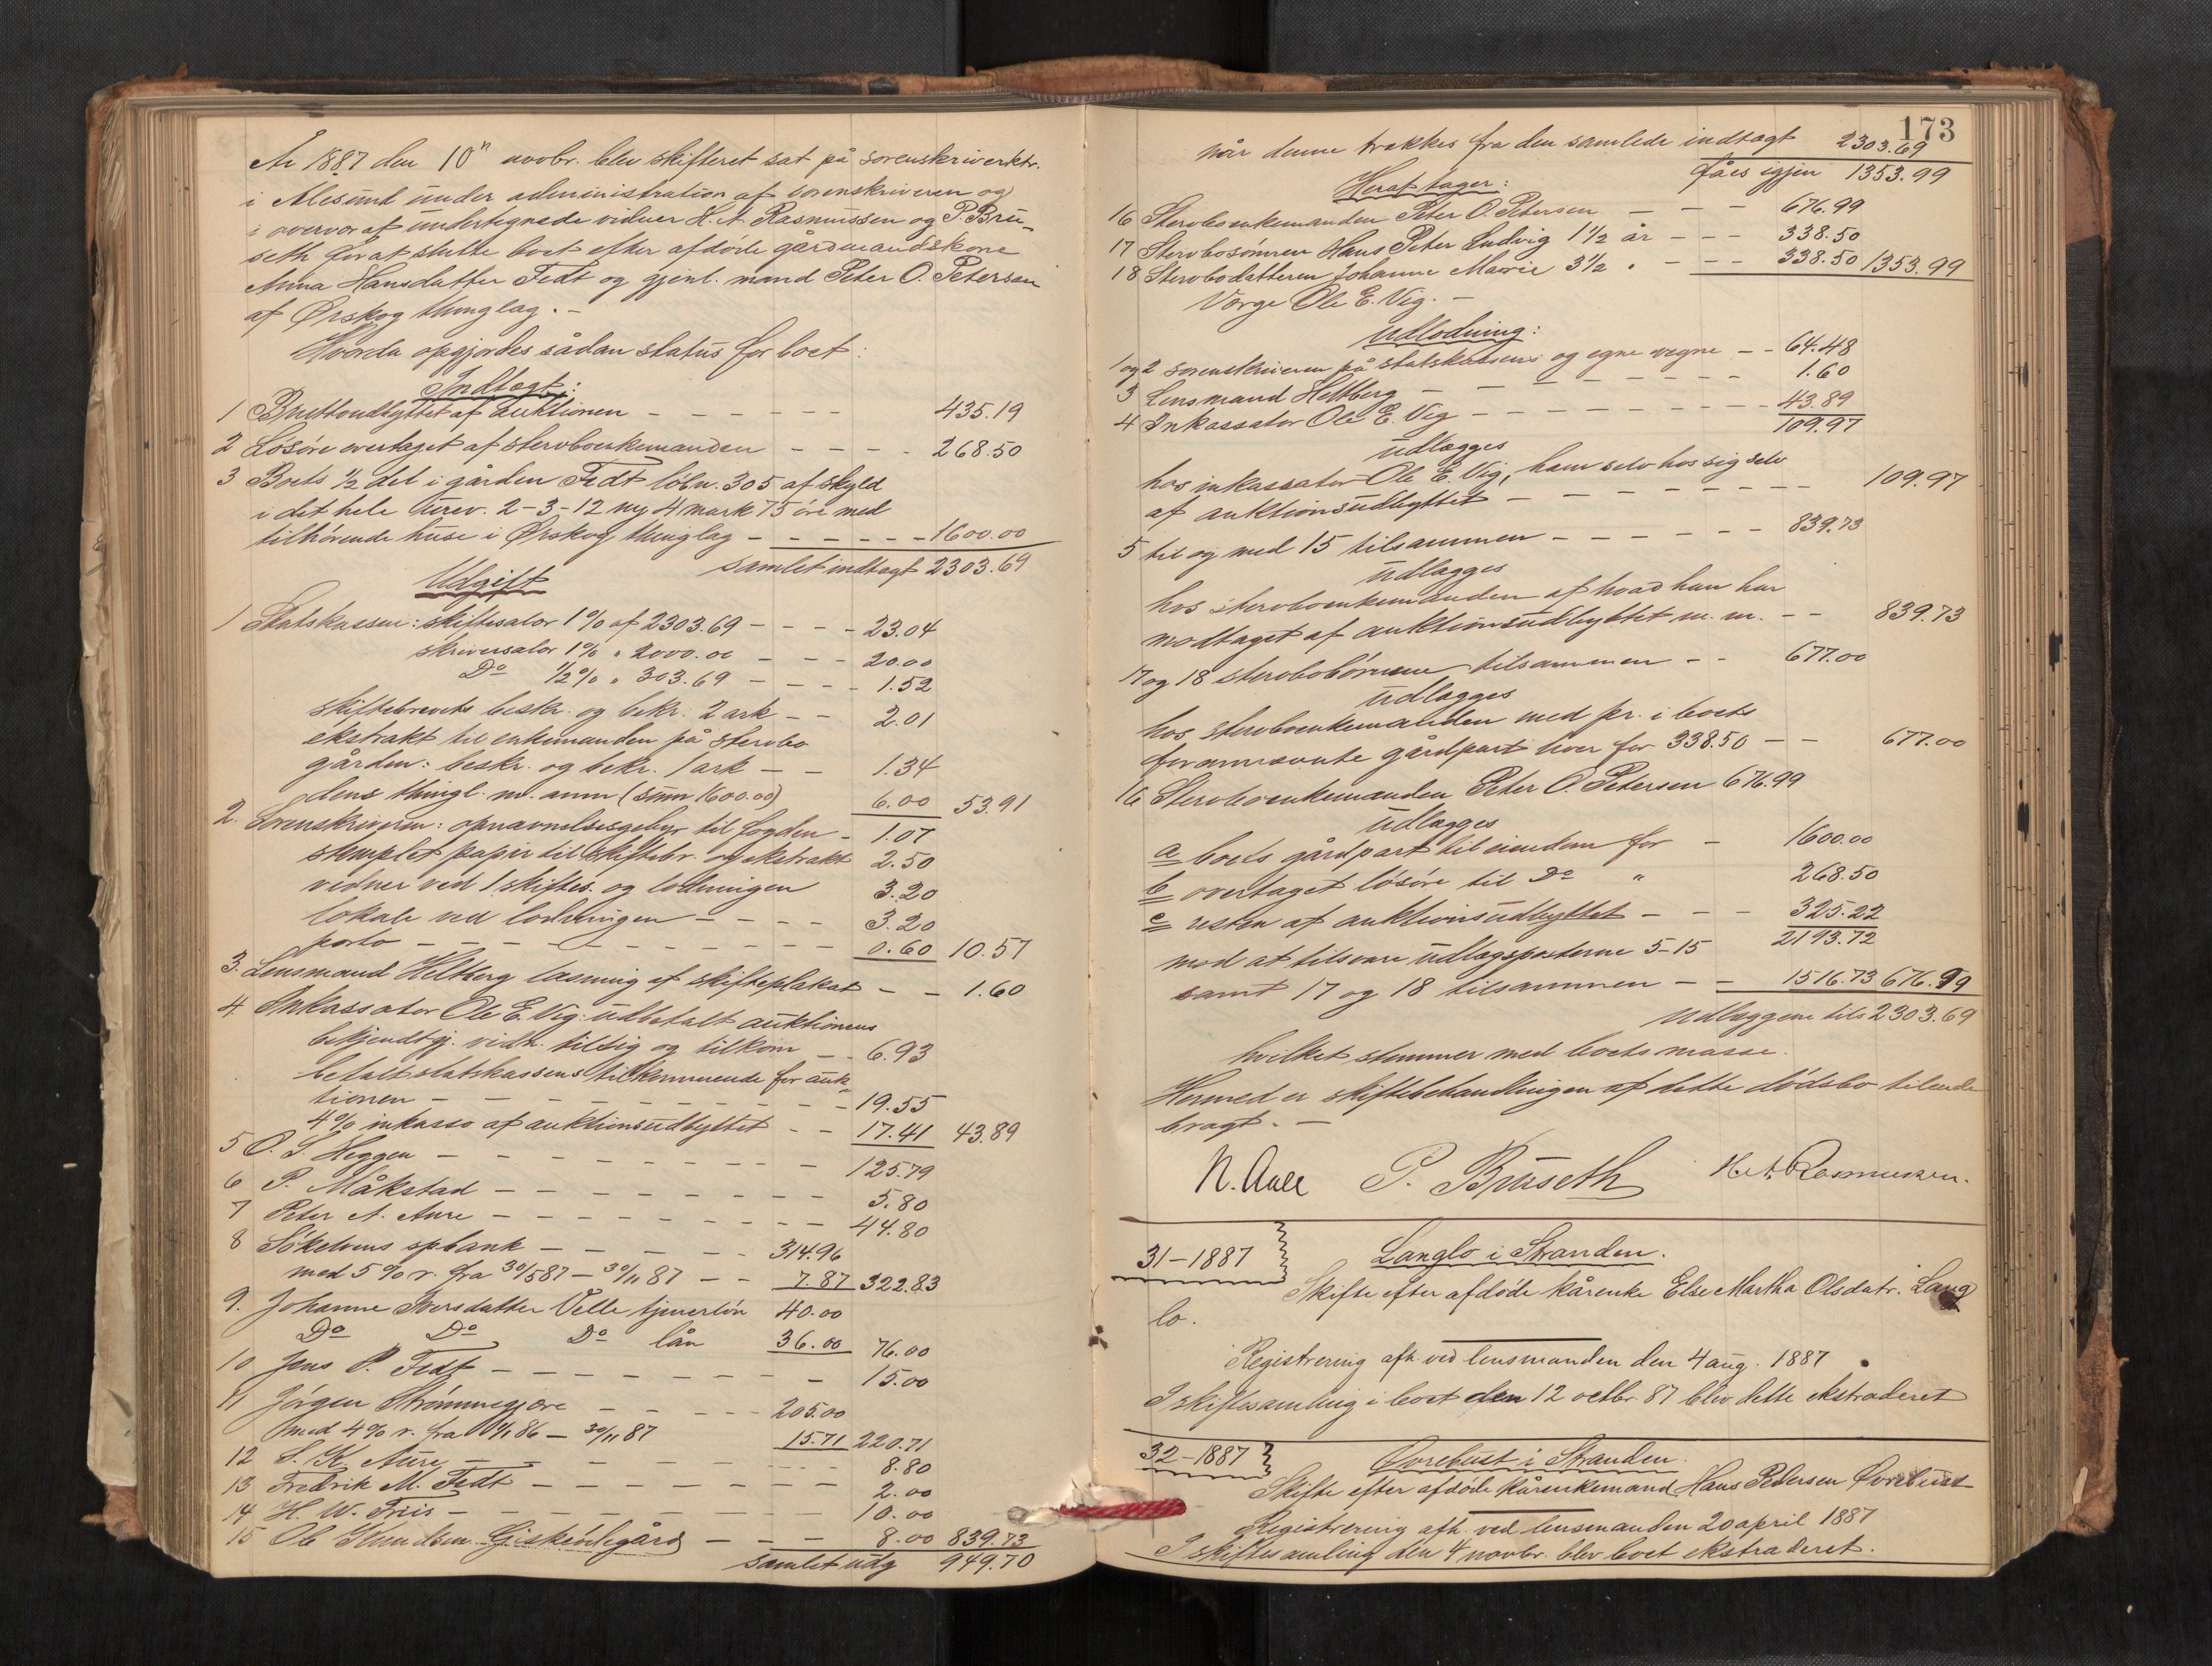 År 1887 den 10n novbr. blev skifteret sat på sorenskriverktr.
i Ålesund under administration af sorenskriveren og
i overvær af undertegnede vidner H. A. Rasmussen og P. Brü-
seth for at slutte boet efter afdøde gårdmandskone
Anna Hansdatter Fedt og gjenl. mand Peter O. Petersen
af Ørskog thinglag. -
Hvorda opgjordes sådan status for boet:
Indtægt:
1 Bruttoudbyttet af auktionen - - - - - - 435.19
2 Løsøre overtaget af sterboenkemanden - - - - 268.50
3 Boets 1/2 del i gården Fedt løbn. 305 af skyld
i det hele urev. 2-3-12 ny 4 mark 75 øre med
tilhørende huse i Ørskog thinglag - - - - - - 1600.00
samlet indtægt 2303.69
Udgift
1 Statskassen: skiftesalær 1% af 2303.69 - - - - 23.04
skriversalær 1% " 2000.00 - - - 20.00
Do 1/2% " 303.69 - - - - 1.52
skiftebrevets beskr. og bekr. 2 ark - - 2.01
ekstrakt til enkemanden på sterbo
gården: beskr. og bekr. 1 ark - - 1.34
dens thingl. m. anm (sum 1600.00) 6.00 53.91
2. Sorenskriveren: opnævnelsesgebyr til fogden - 1.07
stemplet papir til skiftebr. og ekstrakt 2.50
vidner ved 1 skiftes. og lodningen 3.20
lokale ved lodningen - - - - 3.20
porto - - - - - - - - - - 0.60 10.57
3. Lensmand Heltberg læsning af skifteplakat - - 1.60
4 Inkassator Ole E. Vig: udbetalt auktionens
bekjendtgj. vidn. tilsig og tilkom - - 6.93
betalt statskassens tilkommende for auk-
tionen - - - - - - - - - - 19.55
4% inkasso af auktionsudbyttet - - 17.41 43.89
5 O. S. Heggen - - - - - - - - - 125.79
6 P. Måkstad - - - - - - - - 5.80
7 Peter A. Aure - - - - - - - - - 44.80
8 Søkelvens spbank - - - - - - 314.96
med 5% r. fra 30/5 87 - 30/11 87 - - 7.87 322.83
9. Johanne Iversdatter Velle tjenerløn 40.00
Do Do Do lån 36.00 76.00
10 Jens P. Fedt - - - - - - - - - 15.00
11 Jørgen Strømmegjære - - - - - 205.00
med 4% r. fra 86 - 30/11 87 15.71 220.71
12 S. K. Aure - - - - - - - - 8.80
13 Fredrik M. Fedt - - - - - - - 2.00
14 H. W. Friis - - - - - - - - - 10.00
15 Ole Knudsen Giskeødegård - - - 8.00 839.73
samlet udg 949.70
173
når denne trækkes fra den samlede indtægt 2303.69
fåes igjen 1353.99
Heraf tager:
16 Sterboenkemanden Peter O. Petersen - - - 676.99
17 Sterbosønnen Hans Peter Ludvig 1 1/2 år - - - 338.50
18 Sterbodatteren Johanne Marie 3 1/2 " - - - 338.50 1353.99
Værge Ole E. Vig. -
Udlodning:
1 og 2 sorenskriveren på statskassens og egne vegne - - 64.48
3 Lensmand Heltberg - - - - - - - - 1.60
4 Inkassator Ole E. Vig - - - - - - - - - 43.89
109.97
udlægges
hos inkassator Ole E. Vig, ham selv hos sig selv
af auktionsudbyttet - - - - - - - - 109.97
5 til og med 15 tilsammen - - - - - - 839.73
udlægges
hos sterboenkemanden af hvad han har
modtaget af auktionsudbyttet m. m. - - 839.73
17 og 18 sterbobørnene tilsammen - - 677.00
udlægges
hos sterboenkemanden med pr. i boets
forannævnte gårdpart hver for 338.50 - - 677.00
16 Sterboenkemanden Peter O. Petersen 676.99
udlægges
a boets gårdpart til eiendom for - 1600.00
b overtaget løsøre til Do " 268.50
c resten af auktionsudbyttet - - - 325.22
2193.72
mod at tilsvare udlægsposterne 5-15
samt 17 og 18 tilsammen - - 1516.73 676.99
udlæggene tils 2303.69
hvilket stemmer med boets masse.
Hermed er skiftebehandlingen af dette dødsbo tilende
bragt. -
N. Aall P. Brüseth H. A. Rasmussen.
31-1887 Langlo i Stranden.
Skifte efter afdøde kårenke Else Martha Olsdatr. Lang
lo.
Registrering afh. ved lensmanden den 4 aug. 1887
I skiftesamling i boet den 12 octbr. 87 blev dette ekstraderet
32-1887 Øvrebust i Stranden.
Skifte efter afdøde kårenkemand Hans Pedersen Øvrebust
Registrering afh. ved lensmanden 20 april 1887
I skiftesamling den 4 novbr. blev boet ekstraderet.